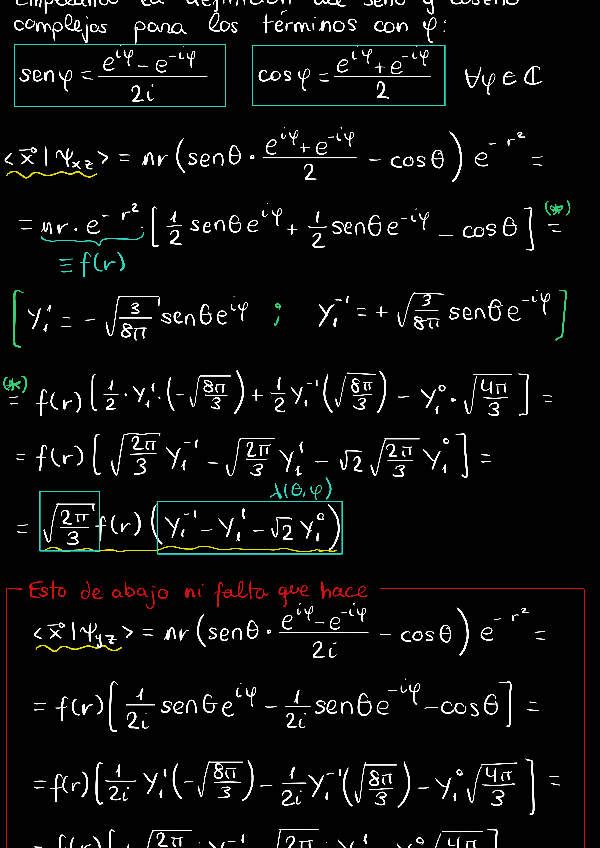 complejos para los términos con φ:
sen φ = (e^{iφ} - e^{-iφ})/2i    cos φ = (e^{iφ} + e^{-iφ})/2    ∀φ ∈ ℂ
<x⃗ | Ψ_{xz}> = nr (senθ · (e^{iφ} + e^{-iφ})/2 - cosθ) e^{-r²} =
= nr · e^{-r²} [1/2 senθ e^{iφ} + 1/2 senθ e^{-iφ} - cosθ] =^{(*)}
≡ f(r)
[Y₁¹ = -√(3/8π) senθ e^{iφ} ; Y₁^{-1} = +√(3/8π) senθ e^{-iφ}]
(*) = f(r) [1/2 · Y₁¹ · (-√(8π/3)) + 1/2 Y₁^{-1} (√(8π/3)) - Y₁⁰ · √(4π/3)] =
= f(r) [√(2π/3) Y₁^{-1} - √(2π/3) Y₁¹ - √2 √(2π/3) Y₁⁰] =
λ(θ,φ)
= √(2π/3) f(r) (Y₁^{-1} - Y₁¹ - √2 Y₁⁰)
Esto de abajo ni falta que hace
<x⃗ | Ψ_{yz}> = nr (senθ · (e^{iφ} - e^{-iφ})/2i - cosθ) e^{-r²} =
= f(r) [1/2i senθ e^{iφ} - 1/2i senθ e^{-iφ} - cosθ] =
= f(r) [1/2i Y₁¹ (-√(8π/3)) - 1/2i Y₁^{-1} (√(8π/3)) - Y₁⁰ √(4π/3)] =